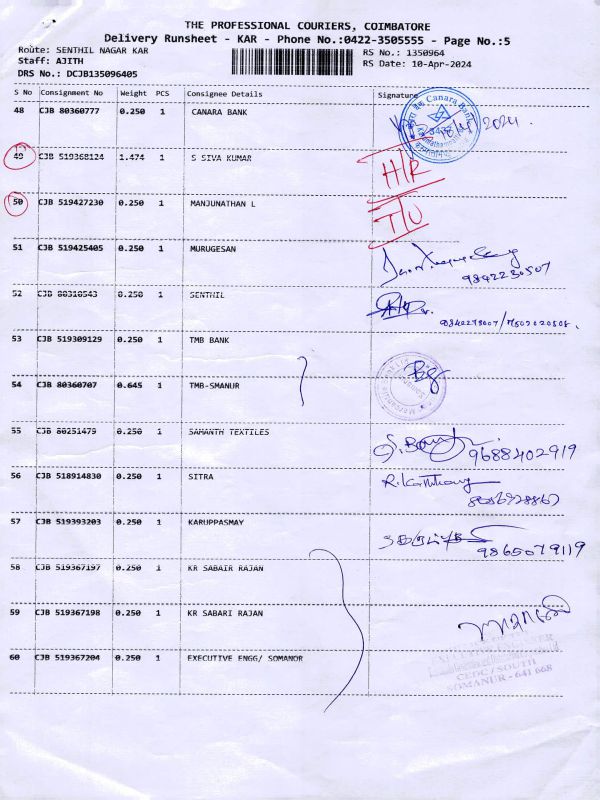 THE PROFESSIONAL COURIERS, COIMBATORE
Delivery Runsheet - KAR - Phone No.:0422-3505555 - Page No.:5
Route: SENTHIL NAGAR KAR
RS No.: 1350964
Staff: AJITH
RS Date: 10-Apr-2024
DRS No.: DCJB135096405
S No Consignment No Weight PCS Consignee Details Signature
48 CJB 80360777 0.250 1 CANARA BANK
Canara Bank
49 CJB 519368124 1.474 1 S SIVA KUMAR H/R
50 CJB 519427230 0.250 1 MANJUNATHAN L T/U
51 CJB 519425405 0.250 1 MURUGESAN
9842230507
52 CJB 80310543 0.250 1 SENTHIL
53 CJB 519309129 0.250 1 TMB BANK
54 CJB 80360707 0.645 1 TMB-SMANUR
55 CJB 80251479 0.250 1 SAMANTH TEXTILES
9688402919
56 CJB 518914830 0.250 1 SITRA
57 CJB 519393203 0.250 1 KARUPPASMAY
9865079119
58 CJB 519367197 0.250 1 KR SABAIR RAJAN
59 CJB 519367198 0.250 1 KR SABARI RAJAN
60 CJB 519367204 0.250 1 EXECUTIVE ENGG/ SOMANOR
CEDC / SOUTH
SOMANUR - 641 668